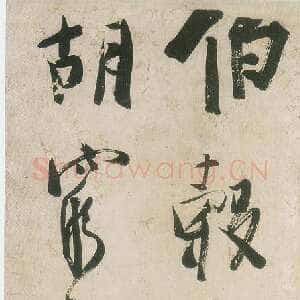 伯穀
胡
Shufawang.CN